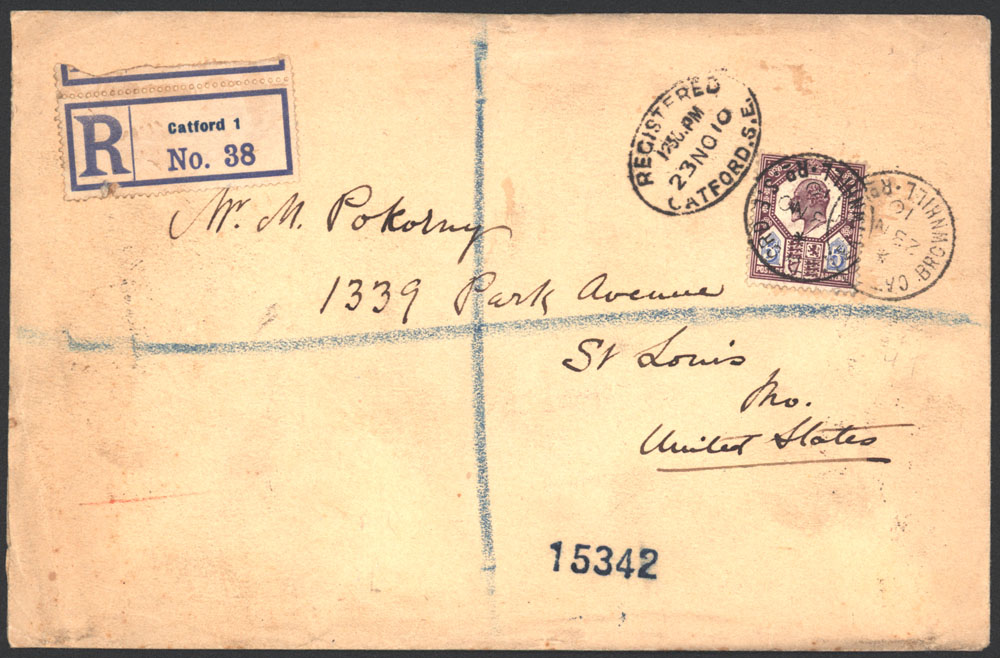 R
Catford 1
No. 38
REGISTERED
1250.PM
23 NO 10
CATFORD.S.E.
Mr. M. Pokorny
1339 Park Avenue
St Louis
Mo.
United States
15342